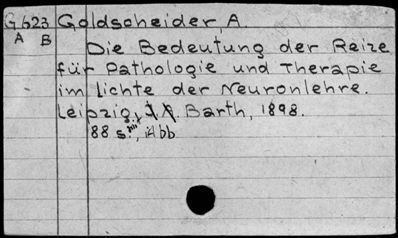 G623 Goldscheider A.
A B
Die Bedeutung der Reize
für Pathologie und Therapie
im lichte der Neuronlehre.
Leipzig, Barth, 1898.
88 s., Abb